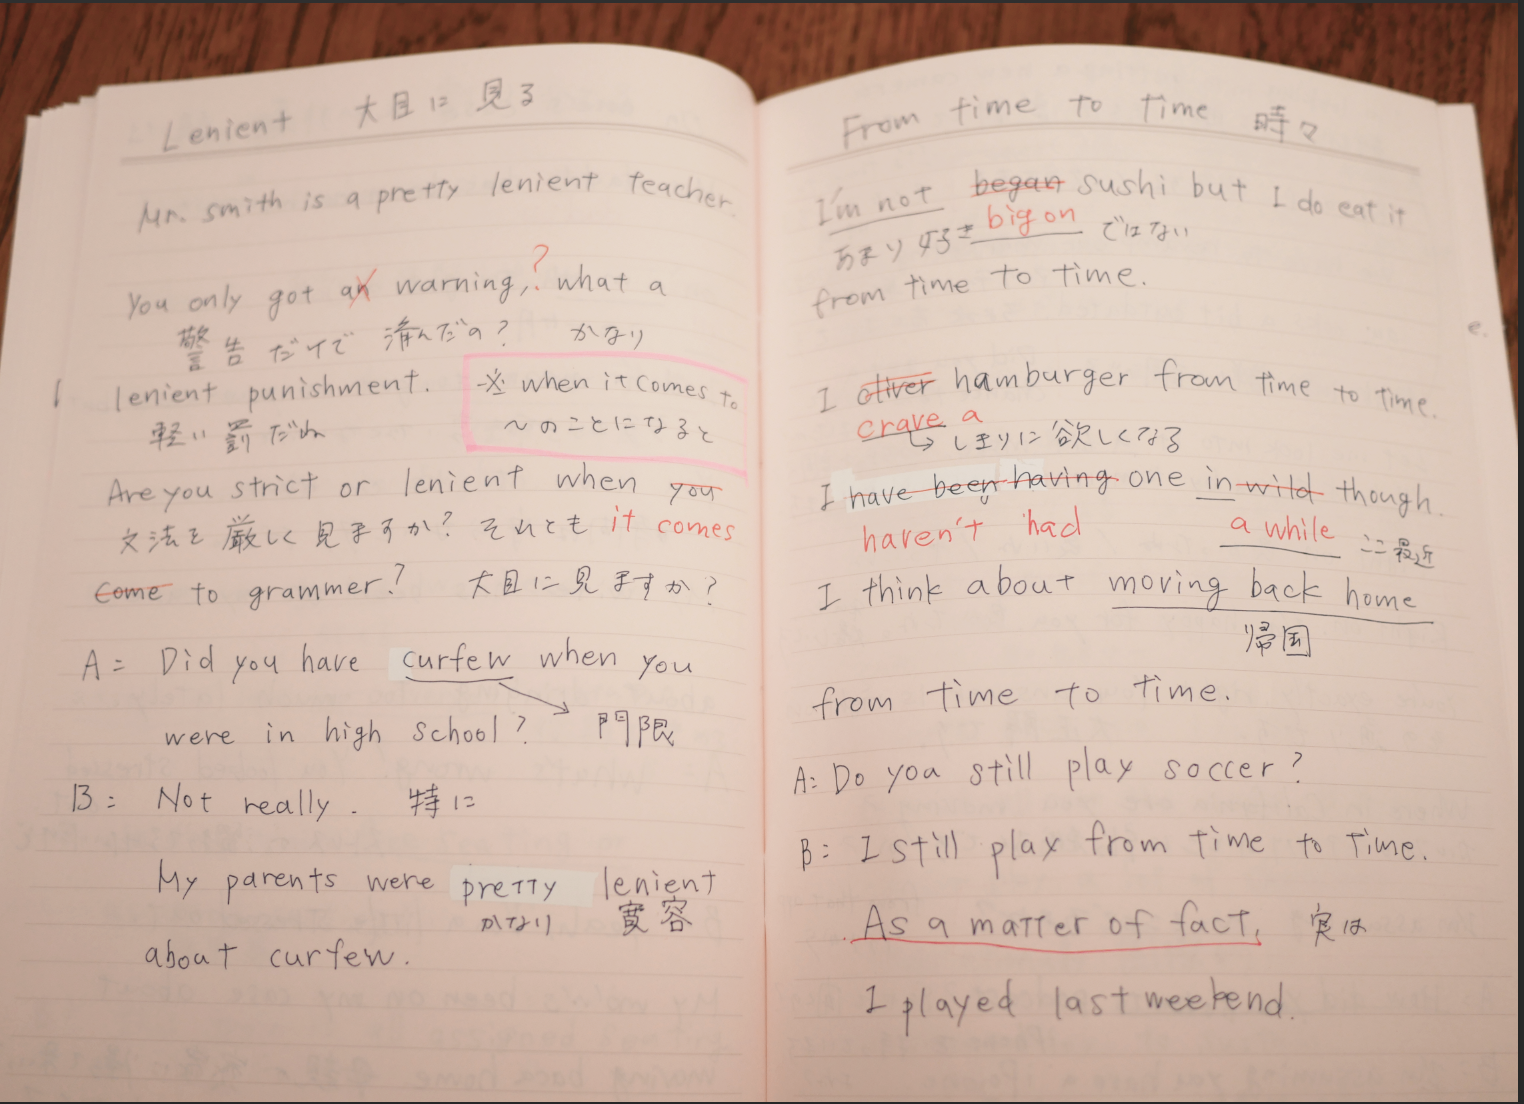 Lenient 大目に見る
Mr. smith is a pretty lenient teacher.
You only got an warning,? what a
警告だけで済んだの? かなり
lenient punishment.
軽い罰だね
※ when it comes to
〜のことになると
Are you strict or lenient when you
文法を厳しく見ますか? それとも it comes
come to grammer? 大目に見ますか?
A: Did you have curfew when you
were in high school? 門限
B: Not really. 特に
My parents were pretty lenient
かなり 寛容
about curfew.
From time to time 時々
I'm not began sushi but I do eat it
あまり好き big on ではない
from time to time.
I oliver hamburger from time to time.
crave a
しきりに欲しくなる
I have been having one in wild though.
haven't had a while ここ最近
I think about moving back home
帰国
from time to time.
A: Do you still play soccer?
B: I still play from time to time.
As a matter of fact, 実は
I played last weekend.